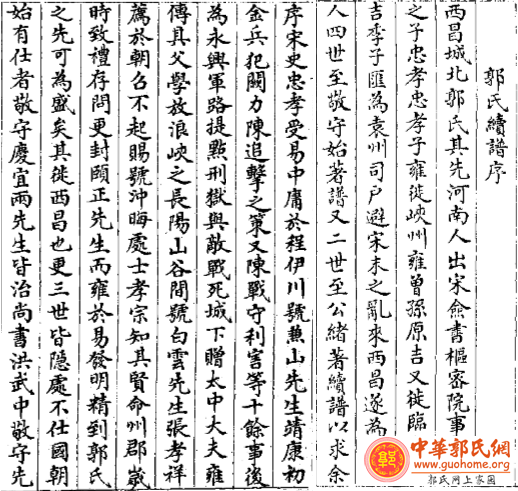 郭氏續譜序
西昌城北郭氏其先河南人出宋僉書樞密院事
之子忠孝忠孝子雍徙峽州雍曾孫原吉又徙臨
吉季子匯為袁州司戶避宋末之亂來西昌遂為
人四世至敬守始著譜又二世至公緒著續譜以求余
序宋史忠孝受易中庸於程伊川號兼山先生靖康初
金兵犯闕力陳追擊之策又陳戰守利害等十餘事後
為永興軍路提點刑獄與敵戰死城下贈太中大夫雍
傳其父學放浪峽之長陽山谷間號白雲先生張孝祥
薦於朝召不起賜號沖晦處士孝宗知其賢命州郡歲
時致禮存問更封頤正先生而雍於易發明精到郭氏
之先可為盛矣其徙西昌也更三世皆隱處不仕國朝
始有仕者敬守慶宜兩先生皆治尚書洪武中敬守先
中華郭氏網
www.guohome.org
郭氏网上家園